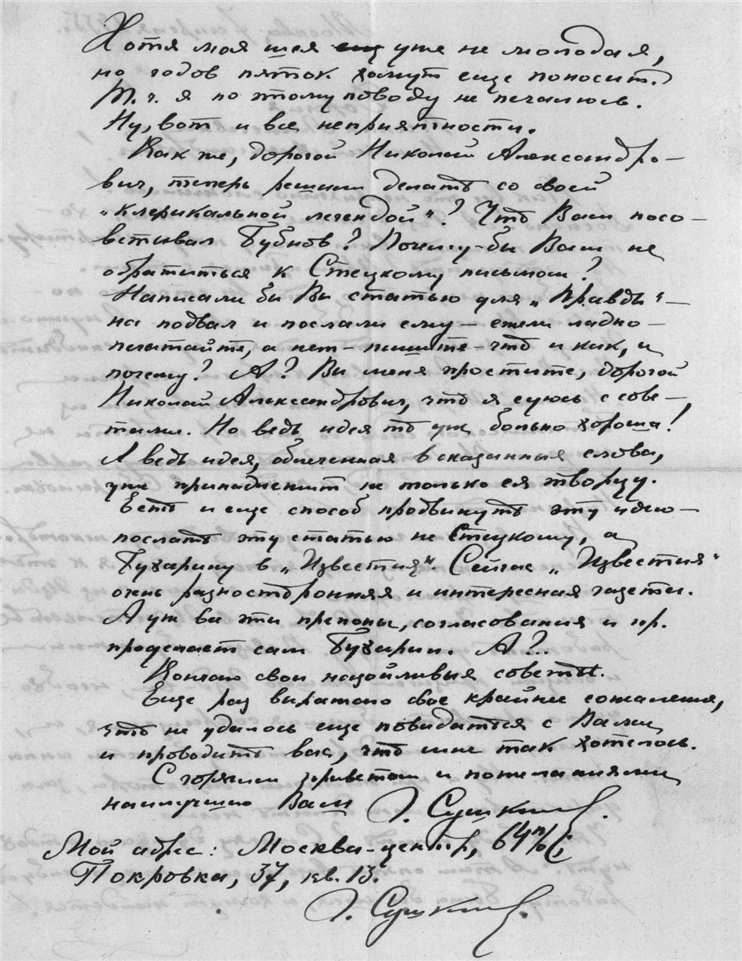 Хотя моя шея уже не молодая,
но годов пяток хомут еще поносит.
Т. ч. я по этому поводу не печалюсь.
Ну, вот и все неприятности.
Как же, дорогой Николай Александро-
вич, теперь решили делать со своей
„клерикальной легендой"? Что Вам посо-
ветывал Бубнов? Почему-бы Вам не
обратиться к Стецкому письмом?
Написали бы Вы статью для „Правды" -
на подвал и послали ему - ежели ладно -
печатайте, а нет - пишите - что и как, и
почему? А? Вы меня простите, дорогой
Николай Александрович, что я суюсь с сове-
тами. Но ведь идея то уж больно хороша!
А ведь идея, облеченная в сказанныя слова,
уже принадлежит не только ея творцу.
Есть и еще способ продвинуть эту идею -
послать эту статью не Стецкому, а
Бухарину в „Известия". Сейчас „Известия"
очень разносторонняя и интересная газета.
А уж все эти препоны, согласования и пр.
проделает сам Бухарин. А?..
Кончаю свои назойливыя советы.
Еще раз выражаю свое крайнее сожаление,
что не удалось еще повидаться с Вами
и проводить вас, что мне так хотелось.
С горячим приветом и пожеланиями
наилучшего Вам
Мой адрес: Москва-центр, 64
Покровка, 37, кв. 13.